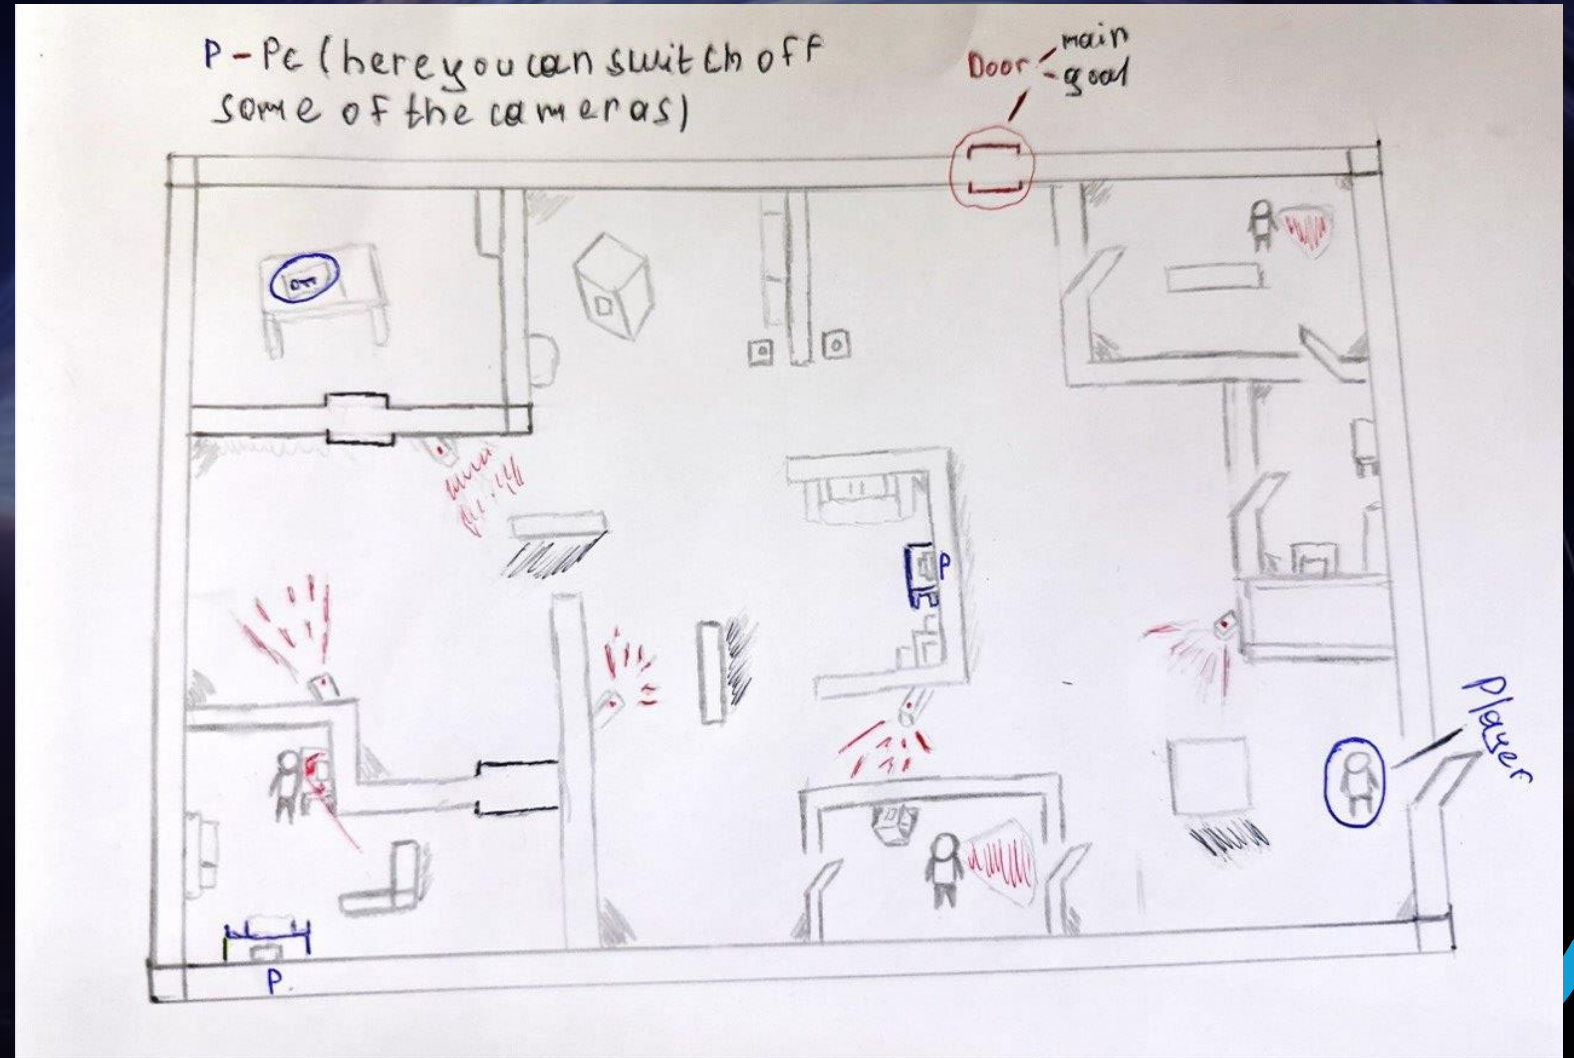 P - Pc (here you can switch off
some of the cameras)
Door - main
- goal
P
Player
P.